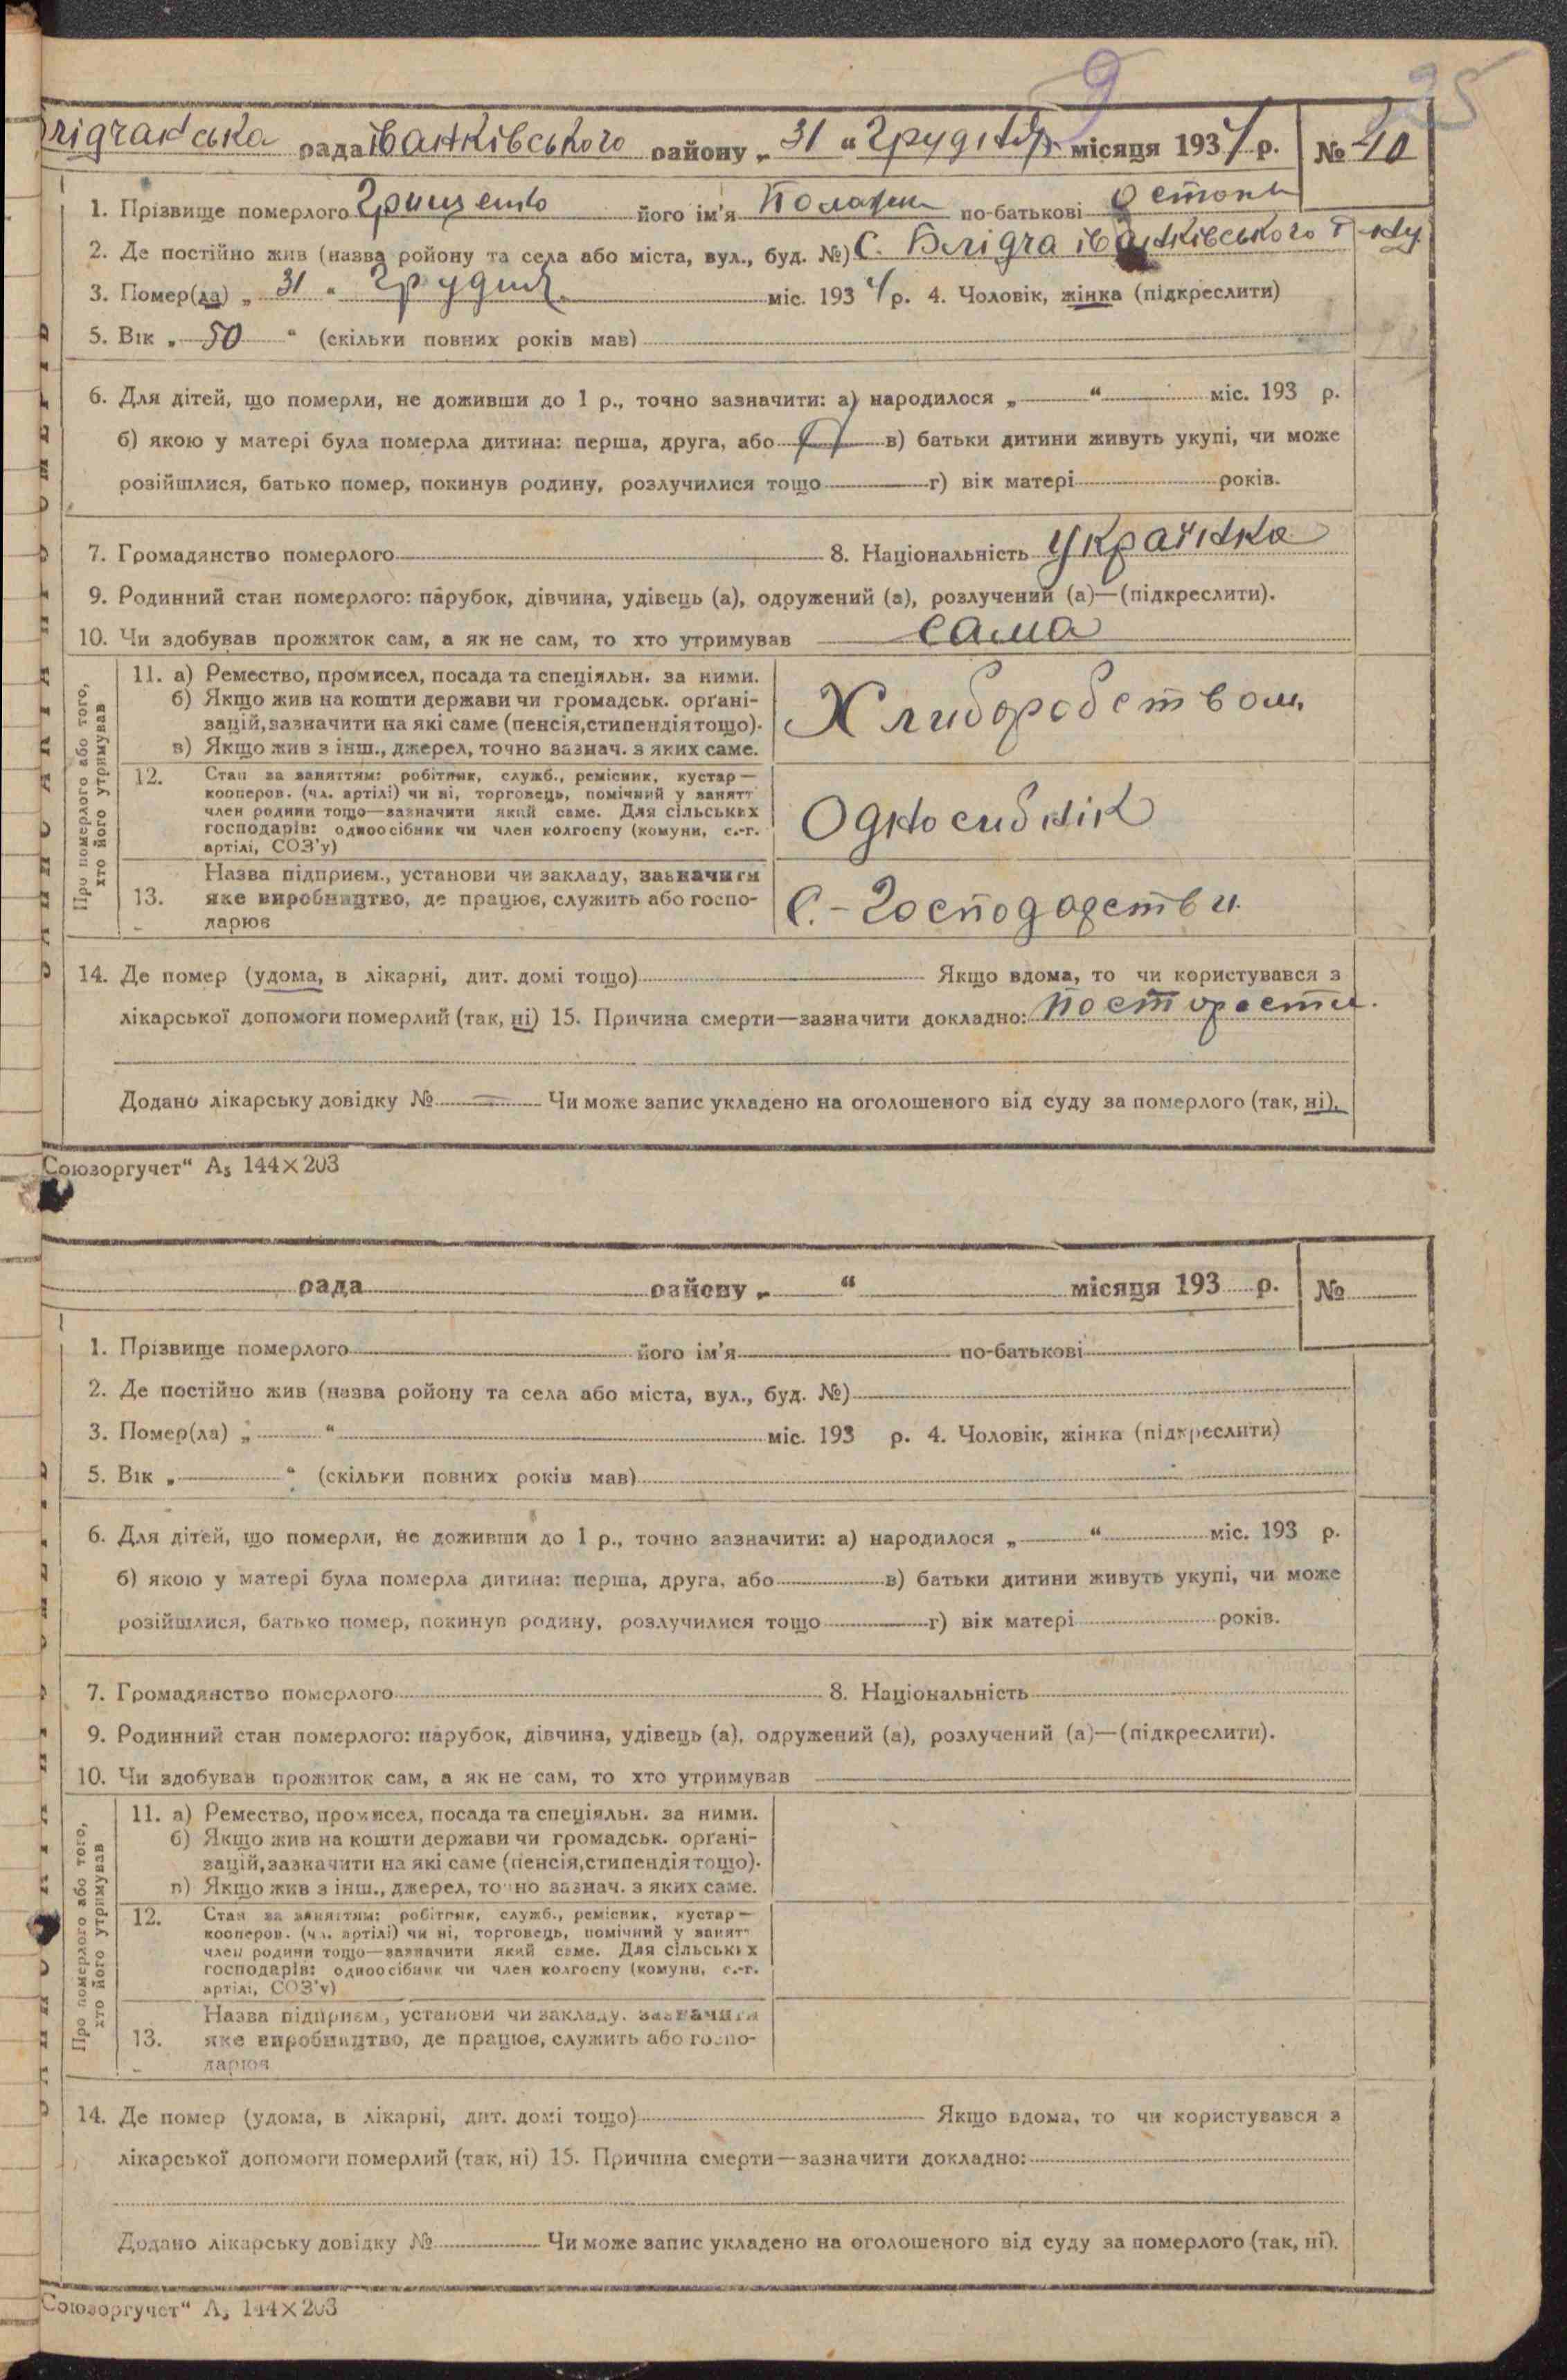 9 25
лідчанська рада іванківського району „ 31 “ Грудня місяця 1934 р. № 40
1. Прізвище померлого Грищенко його ім'я Полажи по-батькові Остопи
2. Де постійно жив (назва ройону та села або міста, вул., буд. №) С. Блідча іванківського
3. Помер(ла) „ 31 “ Грудня міс. 1934 р. 4. Чоловік, жінка (підкреслити)
5. Вік „ 50 “ (скільки повних років мав)
6. Для дітей, що померли, не доживши до 1 р., точно зазначити: а) народилося „ “ міс. 193 р.
б) якою у матері була померла дитина: перша, друга, або в) батьки дитини живуть укупі, чи може
розійшлися, батько помер, покинув родину, розлучилися тощо г) вік матері років.
7. Громадянство померлого 8. Національність Українка
9. Родинний стан померлого: парубок, дівчина, удівець (а), одружений (а), розлучений (а)—(підкреслити).
10. Чи здобував прожиток сам, а як не сам, то хто утримував сама
Про померлого або того,
хто його утримував
11. а) Ремество, промисел, посада та спеціяльн. за ними.
б) Якщо жив на кошти держави чи громадськ. орґані-
зацій, зазначити на які саме (пенсія, стипендія тощо).
в) Якщо жив з інш., джерел, точно зазнач. з яких саме.
Хлиборобством
12. Стан за заняттям: робітник, служб., ремісник, кустар—
кооперов. (чл. артілі) чи ні, торговець, помічний у занятт
член родини тощо—зазначити який саме. Для сільських
господарів: одноосібник чи член колгоспу (комуни, с.-г.
артілі, СОЗ'у)
Односибнік
Назва підприєм., установи чи закладу, зазначити
13. яке виробництво, де працює, служить або госпо-
дарює
С.-Господодстви
14. Де помер (удома, в лікарні, дит. домі тощо) Якщо вдома, то чи користувався з
лікарської допомоги померлий (так, ні) 15. Причина смерти—зазначити докладно: по старости.
Додано лікарську довідку № Чи може запис укладено на оголошеного від суду за померлого (так, ні).
Союзоргучет“ А₅ 144×203
рада району „ “ місяця 193 р. №
1. Прізвище померлого його ім'я по-батькові
2. Де постійно жив (назва ройону та села або міста, вул., буд. №)
3. Помер(ла) „ “ міс. 193 р. 4. Чоловік, жінка (підкреслити)
5. Вік „ “ (скільки повних років мав)
6. Для дітей, що померли, не доживши до 1 р., точно зазначити: а) народилося „ “ міс. 193 р.
б) якою у матері була померла дитина: перша, друга, або в) батьки дитини живуть укупі, чи може
розійшлися, батько помер, покинув родину, розлучилися тощо г) вік матері років.
7. Громадянство померлого 8. Національність
9. Родинний стан померлого: парубок, дівчина, удівець (а), одружений (а), розлучений (а)—(підкреслити).
10. Чи здобував прожиток сам, а як не сам, то хто утримував
Про померлого або того,
хто його утримував
11. а) Ремество, промисел, посада та спеціяльн. за ними.
б) Якщо жив на кошти держави чи громадськ. орґані-
зацій, зазначити на які саме (пенсія, стипендія тощо).
в) Якщо жив з інш., джерел, точно зазнач. з яких саме.
12. Стан за заняттям: робітник, служб., ремісник, кустар—
кооперов. (чл. артілі) чи ні, торговець, помічний у занятт
член родини тощо—зазначити який саме. Для сільських
господарів: одноосібник чи член колгоспу (комуни, с.-г.
артілі, СОЗ'у)
Назва підприєм., установи чи закладу, зазначити
13. яке виробництво, де працює, служить або госпо-
дарює
14. Де помер (удома, в лікарні, дит. домі тощо) Якщо вдома, то чи користувався з
лікарської допомоги померлий (так, ні) 15. Причина смерти—зазначити докладно:
Додано лікарську довідку № Чи може запис укладено на оголошеного від суду за померлого (так, ні).
Союзоргучет“ А₅ 144×203